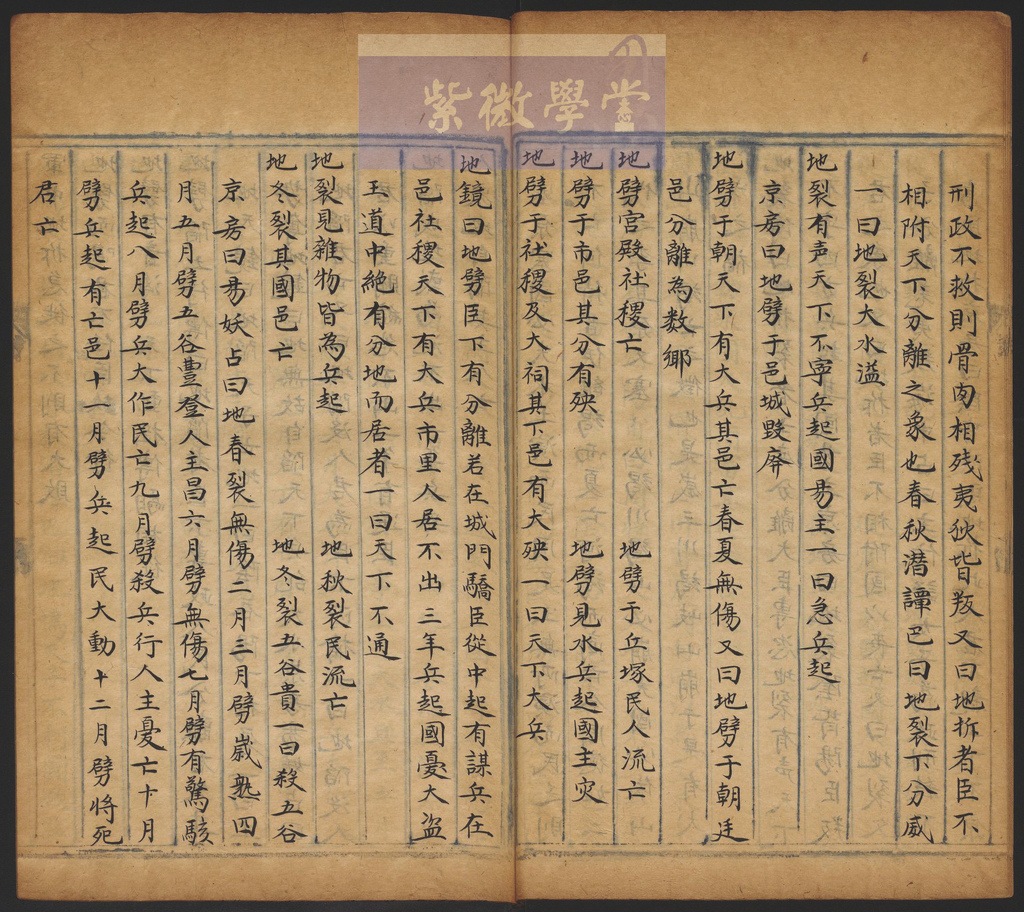 紫微學堂
刑政不救則骨肉相残夷狄皆叛又曰地拆者臣不
相附天下分離之象也春秋潛譚巴曰地裂下分威
一曰地裂大水溢
地裂有声天下不寧兵起國易主一曰急兵起
京房曰地劈于邑城毀廢
地劈于朝天下有大兵其邑亡春夏無傷又曰地劈于朝廷
邑分離為数鄉
地劈宫殿社稷亡　地劈于丘塚民人流亡
地劈于市邑其分有殃　地劈見水兵起國主灾
地劈于社稷及大祠其下邑有大殃一曰天下大兵
地鏡曰地劈臣下有分離若在城門驕臣從中起有謀兵在
邑社稷天下有大兵市里人居不出三年兵起國憂大盗
王道中絶有分地而居者一曰天下不通
地裂見雜物皆為兵起　地秋裂民流亡
地冬裂其國邑亡　地冬裂五谷貴一曰殺五谷
京房曰易妖占曰地春裂無傷二月三月劈歲熟四
月五月劈五谷豊登人主昌六月劈無傷七月劈有驚駭
兵起八月劈兵大作民亡九月劈殺兵行人主憂亡十月
劈兵起有亡邑十一月劈兵起民大動十二月劈将死
君亡